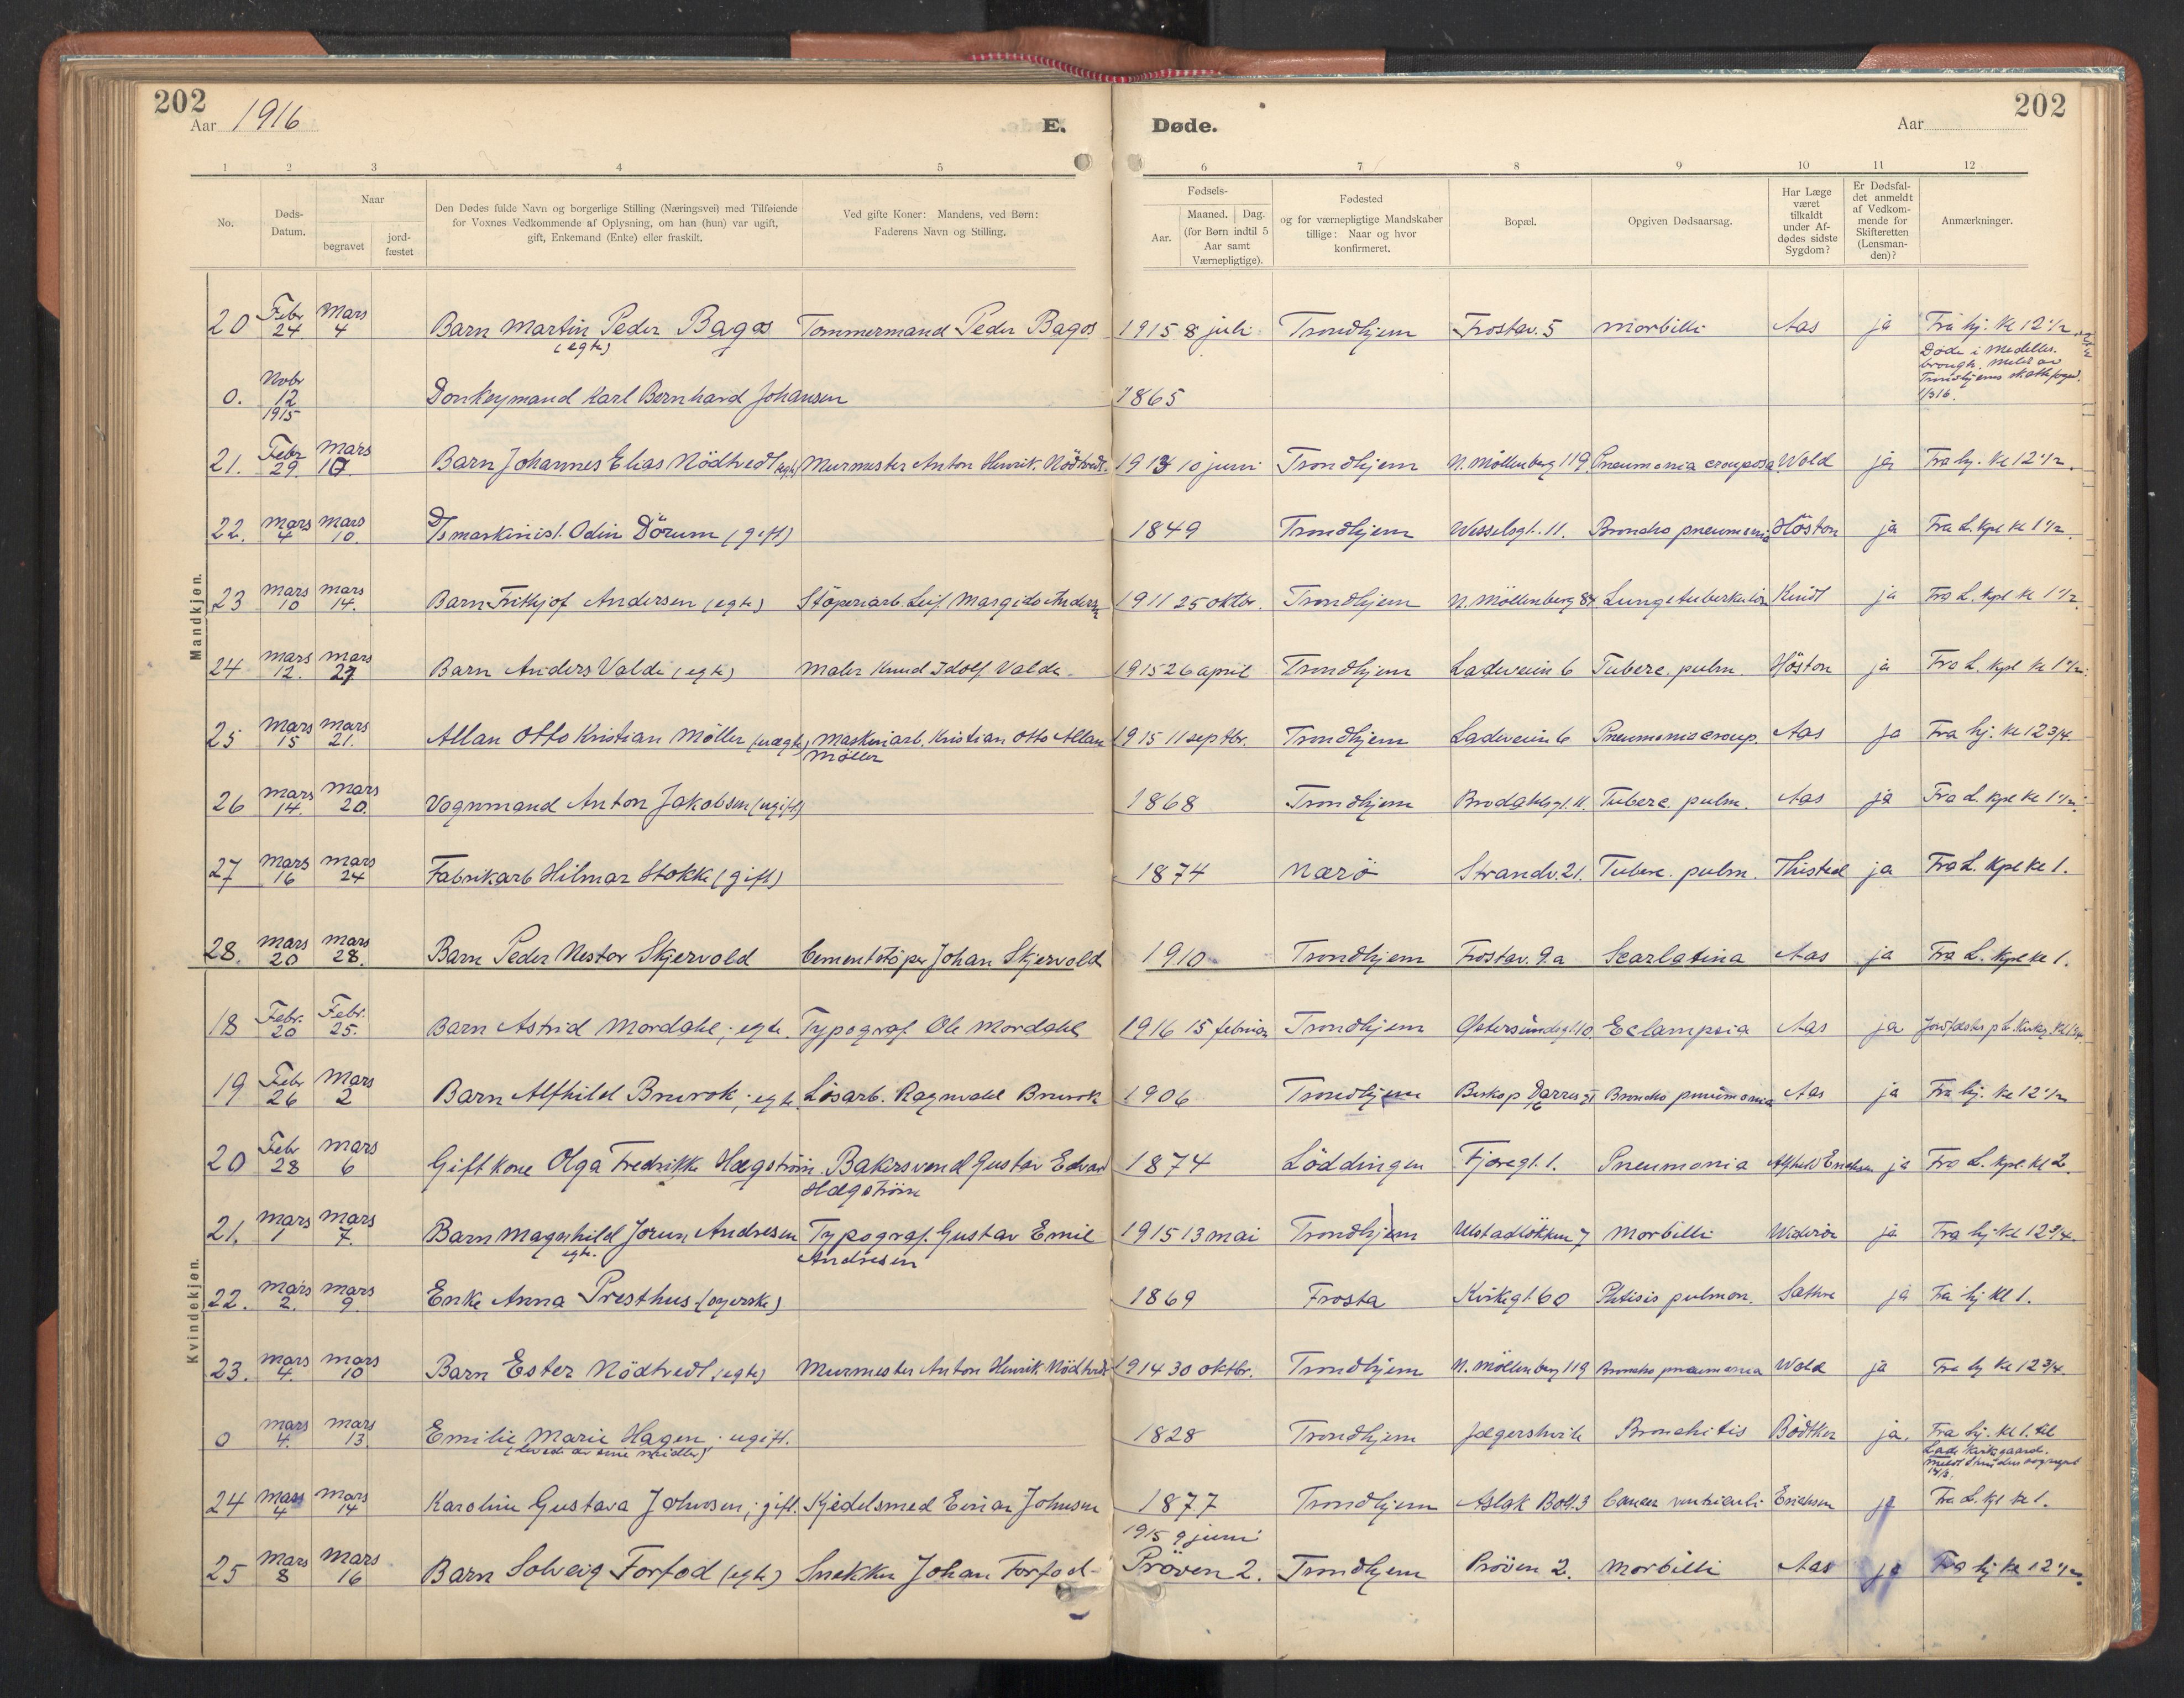 202
Aar 1916
E.
Døde.
Aar
202
1 2 3 4 5 6 7 8 9 10 11 12
No.
Døds-
Datum.
Naar
begravet
jord-
fæstet
Den Dødes fulde Navn og borgerlige Stilling (Næringsvei) med Tilføiende
for Voxnes Vedkommende af Oplysning, om han (hun) var ugift,
gift, Enkemand (Enke) eller fraskilt.
Ved gifte Koner: Mandens, ved Børn:
Faderens Navn og Stilling.
Fødsels-
Aar.
Maaned. Dag.
(for Børn indtil 5
Aar samt
Værnepligtige).
Fødested
og for værnepligtige Mandskaber
tillige: Naar og hvor
konfirmeret.
Bopæl.
Opgiven Dødsaarsag.
Har Læge
været
tilkaldt
under Af-
dødes sidste
Sygdom?
Er Dødsfal-
det anmeldt
af Vedkom-
mende for
Skifteretten
(Lensman-
den)?
Anmærkninger.
Mandkjøn.
20 Febr 24 Mars 4 Barn Martin Peder Bagøs (egte) Tømmermand Peder Bagøs 1915 8 juli Trondhjem Frostav. 5 Morbilli Aas ja Fra hj. kl 12 1/2
0. Nobr 12 1915 Donkeymand Karl Bernhard Johansen 1865 Døde i Medelles-
brough. Meldt av
Trondhjems skattefoged.
1/3 16.
21. Febr 29. Mars 10 Barn Johannes Elias Nödtvedt (egte) Murmester Anton Henrik Nödtvedt 1913 10 juni Trondhjem N. Möllenberg 119. Pneumonia crouposa Wold ja Fra hj. kl 12 1/2.
22. Mars 4 Mars 10. D/s maskinist. Odin Dörum (gift) 1849 Trondhjem Wesselsgt. 11. Broncho pneumonia Höston ja Fra L. kpl kl 1 1/2.
23 Mars 10 Mars 14. Barn Fritjof Andersen (egte) Stöperiarb. Leif Margido Andersen 1911 25 oktbr. Trondhjem N. Möllenberg 84 Lungetuberkulose Kindt ja Fra L. kpl kl 1 1/2.
24 Mars 12. Mars 27. Barn Anders Valde (egte) Maler Knud Idolf Valde 1915 26 april Trondhjem Ladeveien 6 Tuberc. pulm. Höston ja Fra L. kpl kl 1 1/2.
25 Mars 15 Mars 21. Allan Otto Kristian Möller (uægte) Maskinarb. Kristian Otto Allan
Möller 1915 11 septbr. Trondhjem Ladeveien 6 Pneumonia croup. Aas ja Fra hj. kl 12 3/4.
26 Mars 14. Mars 20. Vognmand Anton Jakobsen (ugift) 1868 Trondhjem Brodahlsgt. 11. Tuberc. pulm. Aas ja Fra L. kpl kl 1 1/2.
27 Mars 16 Mars 24 Fabrikarb Hilmar Stokke (gift) 1874 Nærö Strandv. 21. Tuberc. pulm. Thisted ja Fra L. kpl kl 1.
28. Mars 20 Mars 28. Barn Peder Nestor Skjervold Cementstöper Johan Skjervold 1910 Trondhjem Frostav. 9.a Scarlatina Aas ja Fra L. kpl kl 1.
Kvindekjøn.
18 Febr. 20 Febr. 25. Barn Astrid Mordahl; egte. Typograf Ole Mordahl 1916 15 februar Trondhjem Östersundsgt. 10. Eclampsia Aas ja
19 Febr 26 Mars 2 Barn Alfhild Bruvok; egte. Lösarb. Ragnvald Bruvok 1906 Trondhjem Biskop Darres gt Broncho pneumonia Aas ja Fra hj. kl 12 1/2
20 Febr 28 Mars 6 Gift kone Olga Fredrikke Hægström. Bakersvend Gustav Edvard
Hægström 1874 Löddingen Fjæregt. 1. Pneumonia Alfhild Erichsen ja Fra L. kpl. kl 2.
21. Mars 1 Mars 7. Barn Magnhild Jorun Andresen egte. Typograf. Gustav Emil
Andresen 1915 13 mai Trondhjem Ulstadlökken 7 Morbilli Wideröe ja Fra hj kl 12 3/4.
22. Mars 2. Mars 9. Enke Anna Presthus (syerske) 1869 Frosta Kirkegt. 60 Phtisis pulmon. Sæthre ja Fra hj kl 1.
23. Mars 4. Mars 10 Barn Ester Nödtvedt (egte) Murmester Anton Henrik Nödtvedt 1914 30 oktbr. Trondhjem N. Möllenberg 119 Broncho pneumonia Wold ja Fra hj kl 12 3/4.
0 Mars 4. Mars 13. Emilie Marie Hagen; ugift. (levede av sine midler) 1828 Trondhjem Jægershvile Bronchitis Bödtker ja. Fra hj. kl 1. til
Lade Kirkgaard.
24 Mars 4 Mars 14 Karoline Gustava Johnsen; gift. Kjedelsmed Einar Johnsen 1877 Trondhjem Aslak Bolt. 3 Cancer ventriculi Erichsen ja Fra L. kpl kl 1.
25 Mars 8 Mars 16 Barn Solveig Forfod (egte) Snekker Johan Forfod 1915 9 juni
Pröven 2. Trondhjem Pröven 2. Morbilli Aas ja Fra hj kl 12 1/2.